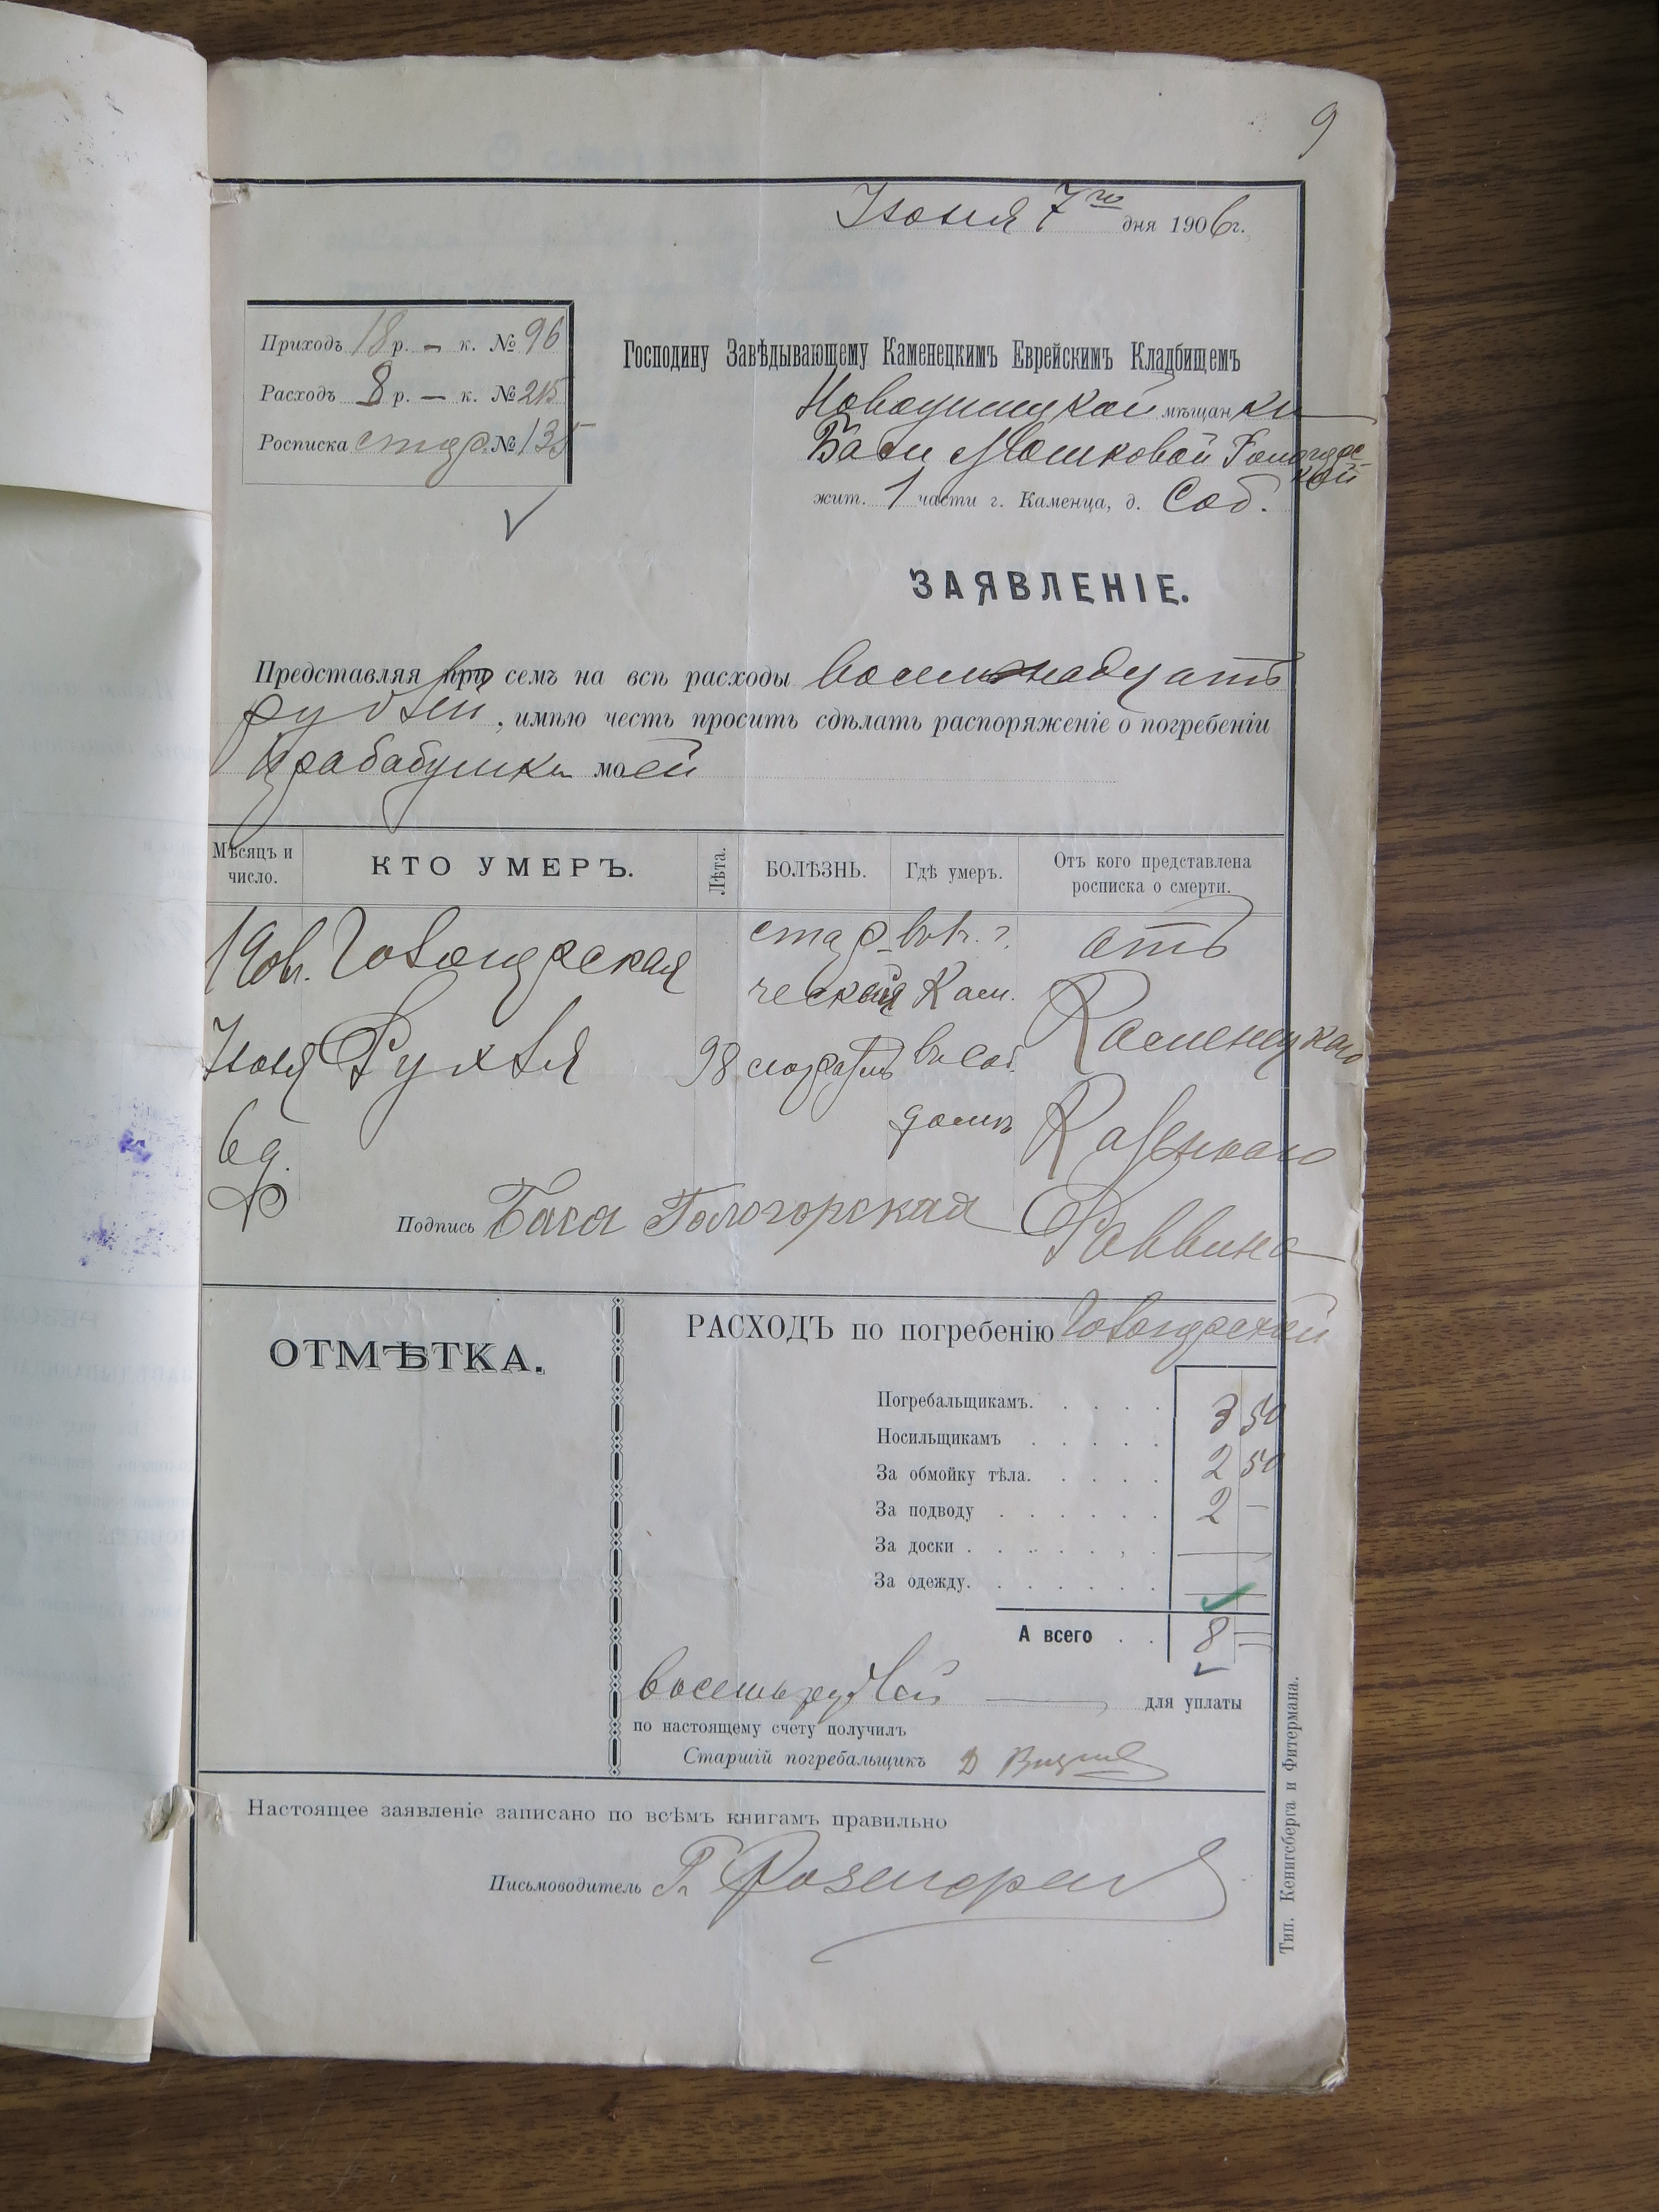 9
Июня 7го дня 1906 г.
Приходъ 18 р. — к. № 96
Расходъ 8 р. — к. № 215
Росписка стар. № 135
Господину Завѣдывающему Каменецкимъ Еврейскимъ Кладбищемъ
Новоушицкой мѣщанки
Баси Мошковой
жит. 1 части г. Каменца, д. Соб.
ЗАЯВЛЕНІЕ.
Представляя при семъ на всѣ расходы восемнадцать
рублей, имѣю честь просить сдѣлать распоряженіе о погребеніи
прабабушки моей
Мѣсяцъ и число.
КТО УМЕРЪ.
Лѣта.
БОЛѢЗНЬ.
Гдѣ умеръ.
Отъ кого представлена росписка о смерти.
Рухля
98
въ г. Кам. въ соб. домѣ
отъ Каменецкаго Казеннаго Раввина
Июня 6 д.
Подпись Бася Гологорская
ОТМѢТКА.
РАСХОДЪ по погребенію
Погребальщикамъ. . . . . 3 50
Носильщикамъ . . . . .
За обмойку тѣла. . . . . 2 50
За подводу . . . . . . 2 —
За доски . . . . . , . —
За одежду. . . . . . . —
А всего . . 8 —
восемь рублей — для уплаты
по настоящему счету получилъ
Старшій погребальщикъ Д
Настоящее заявленіе записано по всѣмъ книгамъ правильно
Письмоводитель
Тип. Кенигсберга и Фитермана.